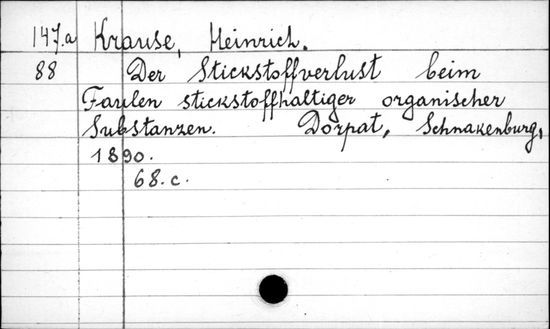 147.a Krause, Heinrich.
88 Der Stickstoffverlust beim
Faulen stickstoffhaltiger organischer
Substanzen. Dorpat, Schnakenburg,
1890.
68. c.